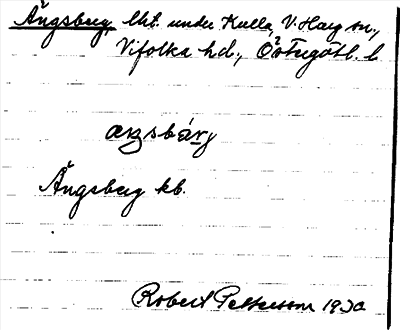 Ängsberg, lht. under Kulla, V. Harg sn.,
Vifolka hd., Östergötl. l.
Ängsberg kb.
Robert Pettersson 1930